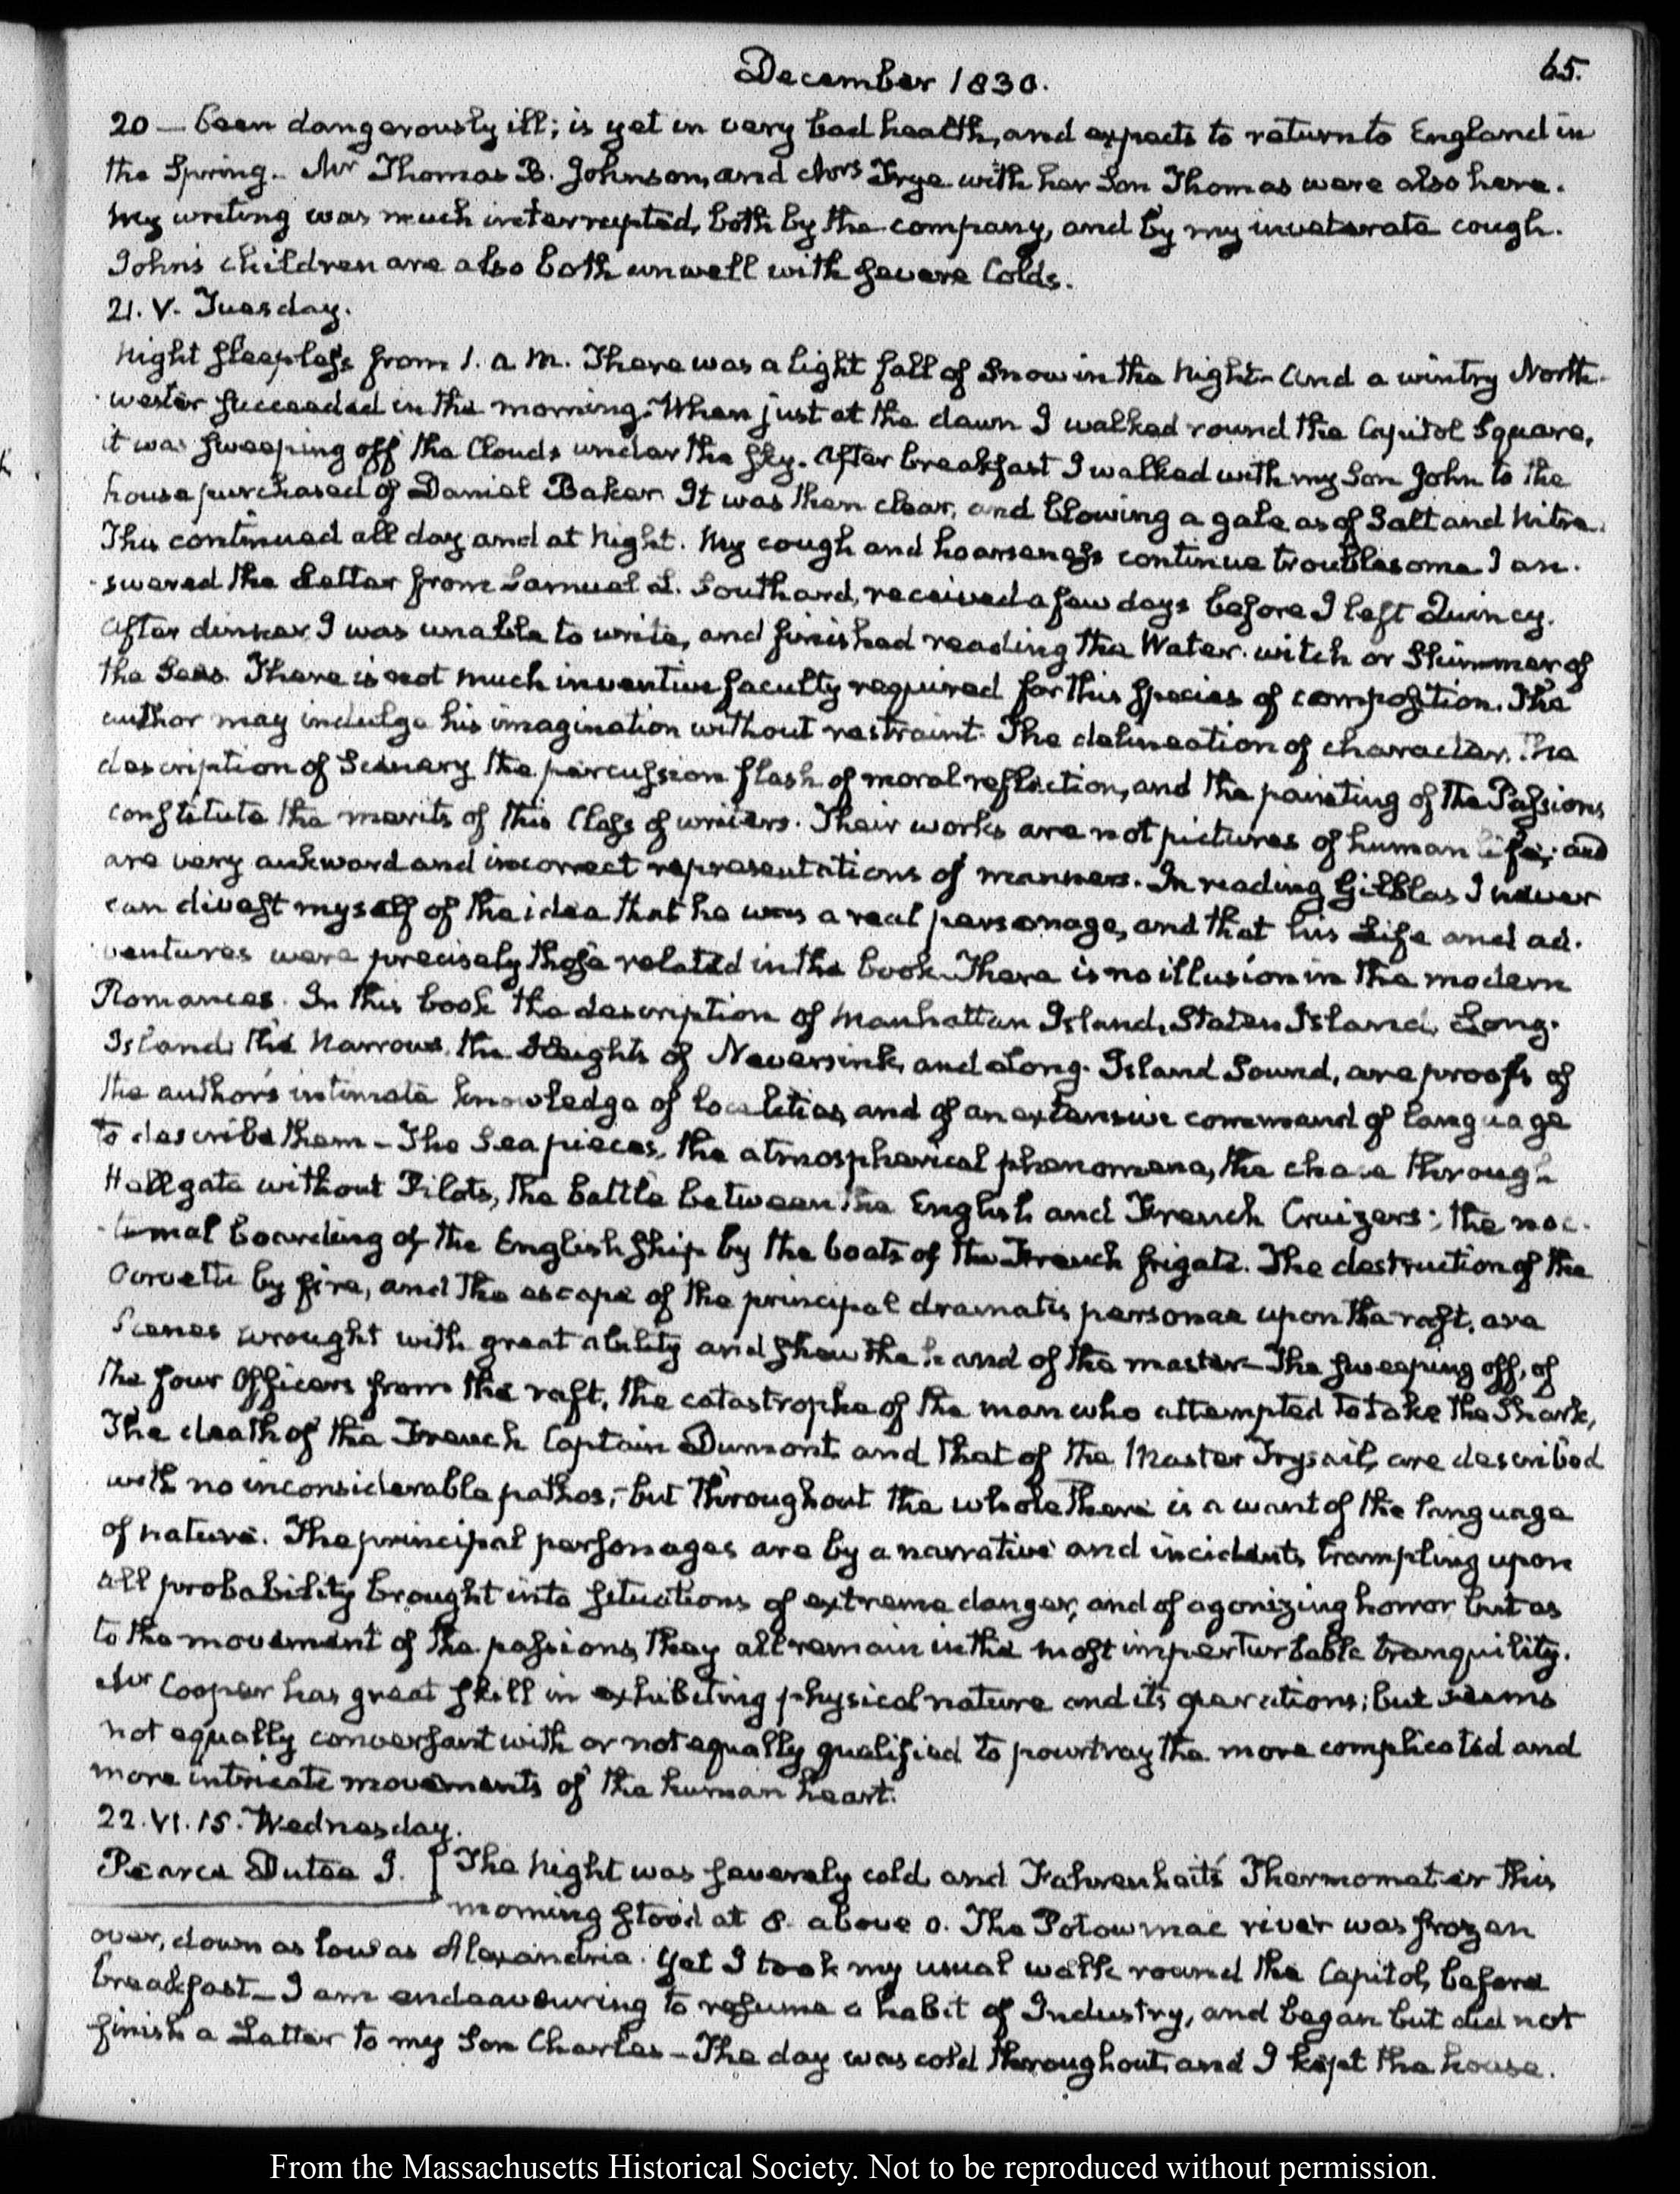 December 1830.
65.
20 — been dangerously ill; is yet in very bad health, and expects to return to England in
the Spring. Mr Thomas B. Johnson, and Mrs Frye with her Son Thomas were also here.
My writing was much interrupted, both by the company, and by my inveterate cough.
John's children are also both unwell with severe Colds.
21. V. Tuesday.
Night sleepless from 1. a M. There was a light fall of Snow in the Night and a wintry North-
wester succeeded in the morning. When just at the dawn I walked round the Capitol Square,
it was sweeping off the Clouds under the sky. After breakfast I walked with my Son John to the
house purchased of Daniel Baker It was then clear, and blowing a gale as of Salt and Nitre.
This continued all day and at Night. My cough and hoarseness continue troublesome I an-
swered the Letter from Samuel L. Southard, received a few days before I left Quincy.
After dinner I was unable to write, and finished reading the Water-witch or Skimmer of
the Seas. There is not much inventive faculty required for this species of composition. The
author may indulge his imagination without restraint. The delineation of character, the
description of Scenery the percussion flash of moral reflection, and the painting of the Passions
constitute the merits of this Class of writers. Their works are not pictures of human life; and
are very aukward and incorrect representations of manners. In reading Gil blas I never
can divest myself of the idea that he was a real personage, and that his Life and ad-
ventures were precisely those related in the book. There is no illusion in the modern
Romances. In this book the description of Manhattan Island, Staten Island, Long-
Island, the Narrows, the Heights of Neversink, and Long-Island Sound, are proofs of
the author's intimate knowledge of localities, and of an extensive command of language
to describe them — The Sea pieces, the atmospherical phenomena, the chase through
Hellgate without Pilots, the battle between the English and French Cruizers; the noc-
turnal boarding of the English ship by the boats of the French frigate. The destruction of the
Corvette by fire, and the escape of the principal dramatis personae upon the raft, are
Scenes wrought with great ability and shew the hand of the master — The sweeping off, of
the four Officers from the raft, the catastrophe of the man who attempted to take the Shark,
The death of the French Captain Dumont and that of the Master Trysail, are described
with no inconsiderable pathos; but throughout the whole there is a want of the language
of nature. The principal personages are by a narrative and incidents, trampling upon
all probability brought into situations of extreme danger, and of agonizing horror but as
to the movement of the passions, they all remain in the most imperturbable tranquility.
Mr Cooper has great skill in exhibiting physical nature and its operations; but seems
not equally conversant with or not equally qualified to pourtray the more complicated and
more intricate movements of the human heart.
22. VI. 15. Wednesday.
Pearce Dutee J. The Night was severely cold and Fahrenheit's Thermometer this
morning stood at 8. above 0. The Potowmac river was frozen
over, down as low as Alexandria. Yet I took my usual walk round the Capitol, before
breakfast — I am endeavouring to resume a habit of Industry, and began but did not
finish a Letter to my Son Charles — The day was cold throughout, and I kept the house.
From the Massachusetts Historical Society. Not to be reproduced without permission.